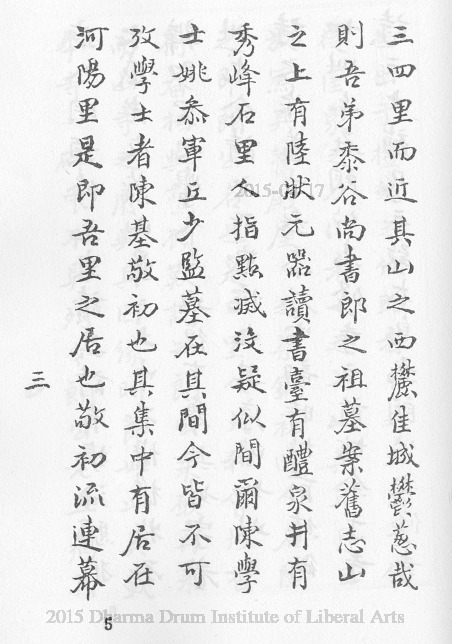 三四里而近其山之西麓佳城鬱蔥哉
則吾弟黍谷尚書郎之祖墓案舊志山
之上有陸狀元器讀書臺有醴泉井有
秀峰石里人指點滅沒疑似間爾陳學
士姚叅軍丘少監墓在其間今皆不可
攷學士者陳基敬初也其集中有居在
河陽里是即吾里之居也敬初流連幕
三
5
2015 Dharma Drum Institute of Liberal Arts